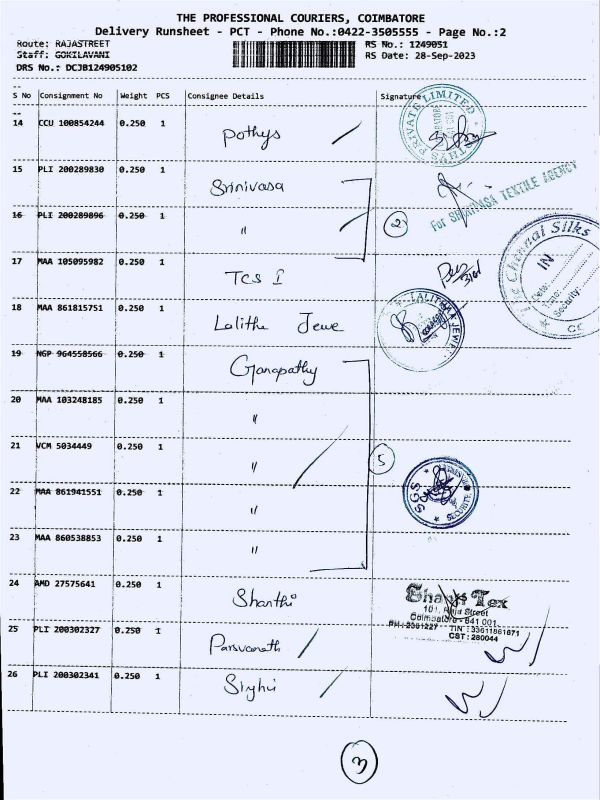 THE PROFESSIONAL COURIERS, COIMBATORE
Delivery Runsheet - PCT - Phone No.:0422-3505555 - Page No.:2
Route: RAJASTREET
Staff: GOKILAVANI
DRS No.: DCJB124905102
RS No.: 1249051
RS Date: 28-Sep-2023
S No Consignment No Weight PCS Consignee Details Signature
14 CCU 100854244 0.250 1 Pothys
15 PLI 200289830 0.250 1 Srinivasa
16 PLI 200289896 0.250 1 "
2
For SRINIVASA TEXTILE AGENCY
17 MAA 105095982 0.250 1 TCS I
The Chennai Silks
IN
Date:
Time:
Security:
18 MAA 861815751 0.250 1 Lalitha Jewe
19 NGP 964558566 0.250 1 Ganapathy
20 MAA 103248185 0.250 1 "
21 VCM 5034449 0.250 1 "
5
22 MAA 861941551 0.250 1 "
SGS
SECURITE
23 MAA 860538853 0.250 1 "
24 AMD 27575641 0.250 1 Shanthi
Shanthi Tex
101, Raja Street
Coimbatore - 641 001
PH : 2381227 TIN : 33611861671
CST : 280044
25 PLI 200302327 0.250 1 Parsvanath
26 PLI 200302341 0.250 1
3